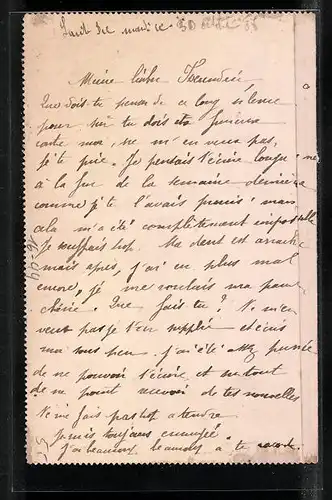 Meine liebe Freundin,
Que dois-tu penser de ce long silence
pour sûr tu dois être furieuse
contre moi, ne m'en veux pas,
je t'en prie. Je pensais t'écrire longue-
à la fin de la semaine dernière
comme je te l'avais promis mais
cela m'a été complètement impossible
Je souffrais trop. Ma dent est arrachée
mais après, j'ai eu plus mal
encore, je me voulais ma pauv
chérie. Que fais tu? Ne m'en
veux pas je t'en supplie et écris
moi sous peu. J'ai été assez punie
de ne pouvoir t'écrire et surtout
de ne point recevoir de tes nouvelles
Ne me fais pas trop attendre
Je suis toujours ennuyée.
J'ai beaucoup, beaucoup à te
16-04